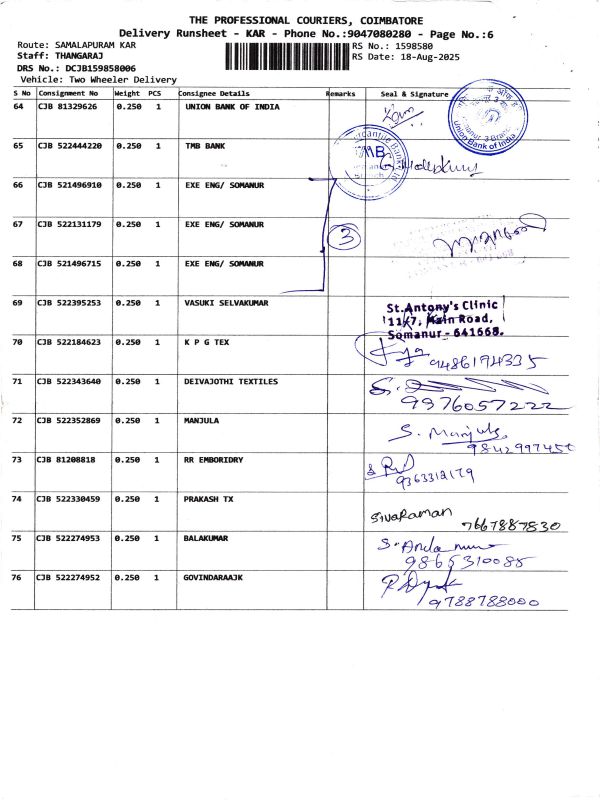 THE PROFESSIONAL COURIERS, COIMBATORE
Delivery Runsheet - KAR - Phone No.:9047080280 - Page No.:6
Route: SAMALAPURAM KAR
RS No.: 1598580
Staff: THANGARAJ
RS Date: 18-Aug-2025
DRS No.: DCJB159858006
Vehicle: Two Wheeler Delivery
S No Consignment No Weight PCS Consignee Details Remarks Seal & Signature
64 CJB 81329626 0.250 1 UNION BANK OF INDIA
Union Bank of India
65 CJB 522444220 0.250 1 TMB BANK
66 CJB 521496910 0.250 1 EXE ENG/ SOMANUR
67 CJB 522131179 0.250 1 EXE ENG/ SOMANUR 3
68 CJB 521496715 0.250 1 EXE ENG/ SOMANUR
69 CJB 522395253 0.250 1 VASUKI SELVAKUMAR
St.Antony's Clinic
11/7, Main Road,
Somanur - 641668.
70 CJB 522184623 0.250 1 K P G TEX
9486194335
71 CJB 522343640 0.250 1 DEIVAJOTHI TEXTILES
9376057222
72 CJB 522352869 0.250 1 MANJULA
S. Manjula
9842997450
73 CJB 81208818 0.250 1 RR EMBORIDRY
9363312179
74 CJB 522330459 0.250 1 PRAKASH TX
SIVARAMAN
7667887830
75 CJB 522274953 0.250 1 BALAKUMAR
9865310085
76 CJB 522274952 0.250 1 GOVINDARAAJK
9788788000